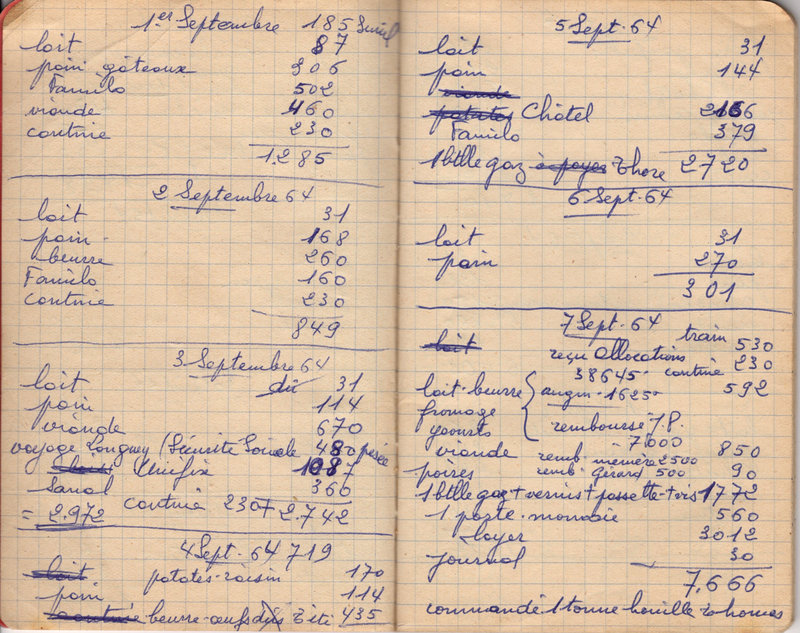 1er Septembre 185
lait 87
pain gâteaux 306
Familo 502
viande 460
cantine 230
1.285
2 Septembre 64
lait 31
pain 168
beurre 260
Familo 160
cantine 230
849
3 Septembre 64
lait dû 31
pain 114
viande 670
voyage Longwy (Sécurité Sociale 480
Unifix 1087
Sanal 360
cantine 230+ 2.742
= 2.972
4 Sept. 64 719
lait patates-raisin 170
pain 114
beurre-oeufs 435
5 Sept. 64
lait 31
pain 144
viande
patates Châtel 2166
Familo 379
1 btlle gaz à payer Thore 2720
6 Sept. 64
lait 31
pain 270
301
7 Sept. 64
lait train 530
reçu Allocations
38645 cantine 230
lait-beurre augm. 1625 592
fromage
yaourts remboursé J.P.
7.000
viande remb. mémère 2500 850
poires remb. Gérard 500 90
1 btlle gaz + vernis + + vis 1772
1 porte-monnaie 560
Loyer 3012
journal 30
7.666
commandé 1 tonne houille Thomas